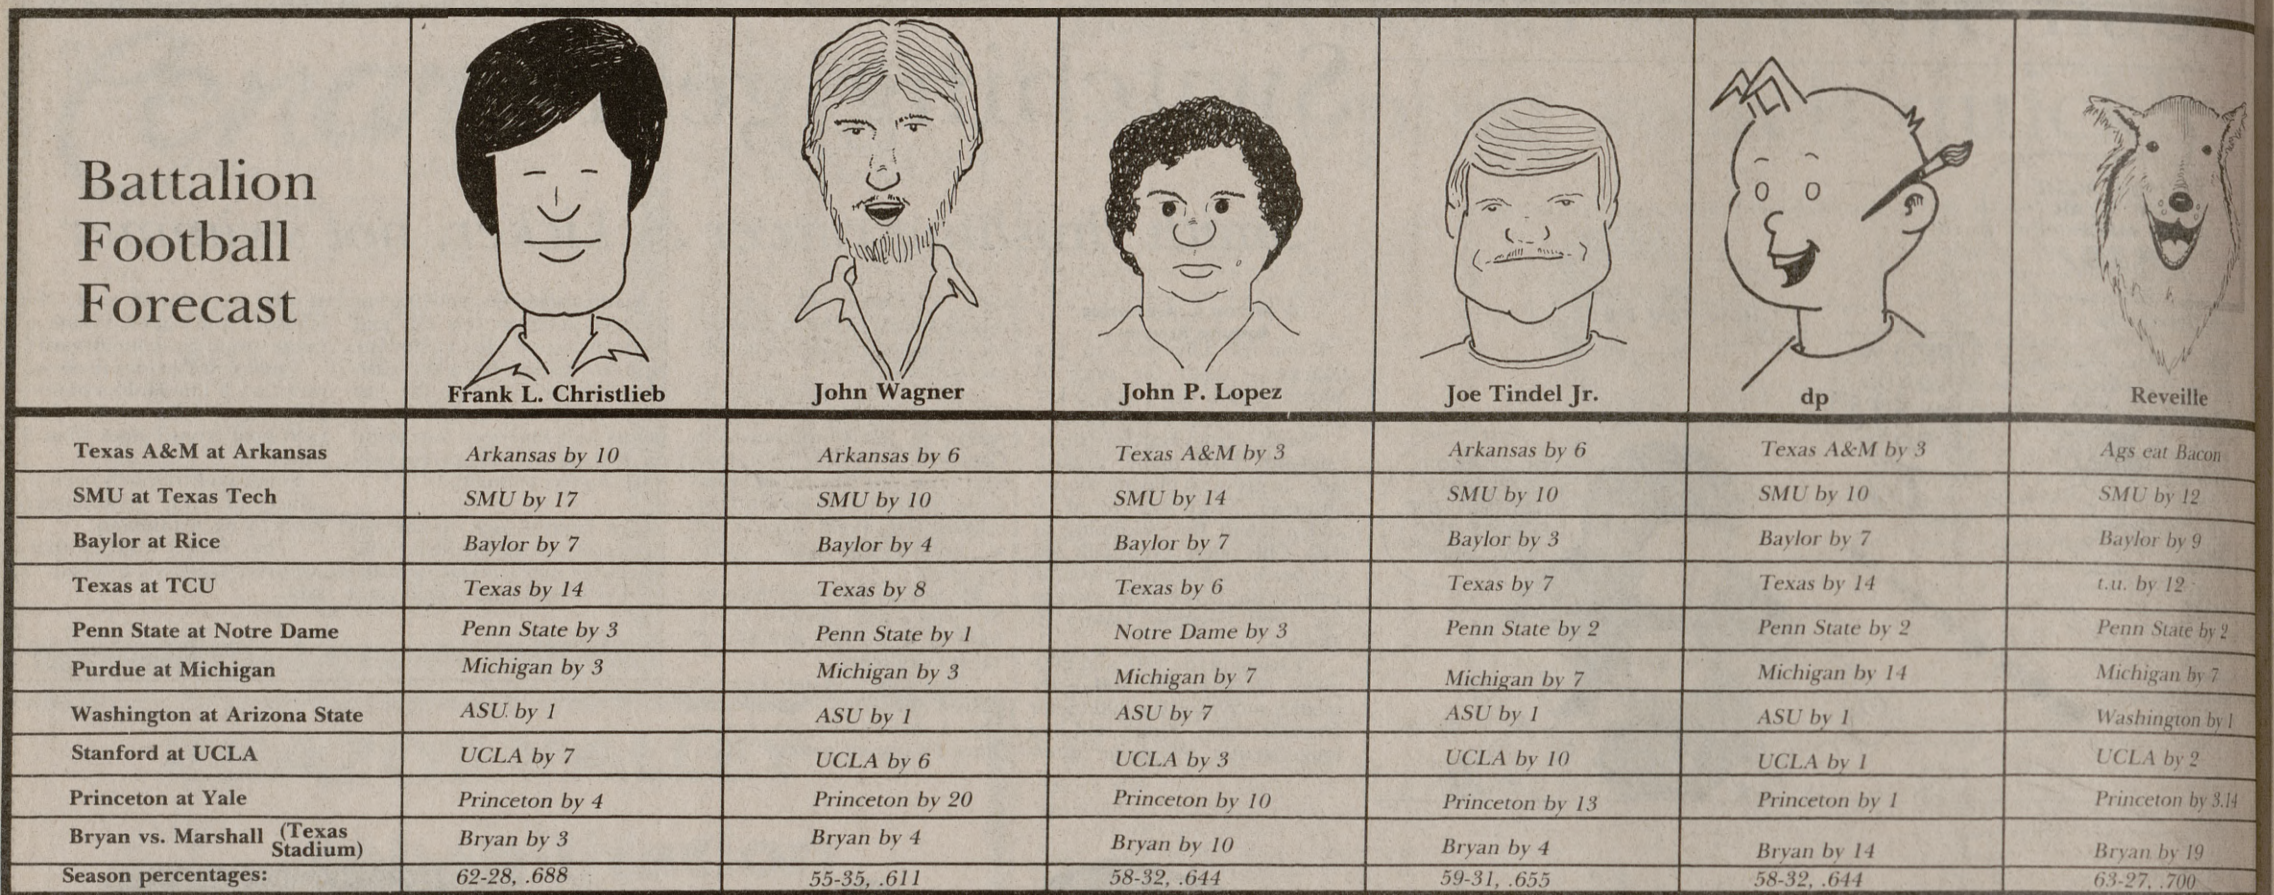 Battalion
Football
Forecast
Frank L. Christlieb John Wagner John P. Lopez Joe Tindel Jr. dp Reveille
Texas A&M at Arkansas Arkansas by 10 Arkansas by 6 Texas A&M by 3 Arkansas by 6 Texas A&M by 3 Ags eat Bacon
SMU at Texas Tech SMU by 17 SMU by 10 SMU by 14 SMU by 10 SMU by 10 SMU by 12
Baylor at Rice Baylor by 7 Baylor by 4 Baylor by 7 Baylor by 3 Baylor by 7 Baylor by 9
Texas at TCU Texas by 14 Texas by 8 Texas by 6 Texas by 7 Texas by 14 t.u. by 12
Penn State at Notre Dame Penn State by 3 Penn State by 1 Notre Dame by 3 Penn State by 2 Penn State by 2 Penn State by 2
Purdue at Michigan Michigan by 3 Michigan by 3 Michigan by 7 Michigan by 7 Michigan by 14 Michigan by 7
Washington at Arizona State ASU by 1 ASU by 1 ASU by 7 ASU by 1 ASU by 1 Washington by 1
Stanford at UCLA UCLA by 7 UCLA by 6 UCLA by 3 UCLA by 10 UCLA by 1 UCLA by 2
Princeton at Yale Princeton by 4 Princeton by 20 Princeton by 10 Princeton by 13 Princeton by 1 Princeton by 3.14
Bryan vs. Marshall (Texas Stadium) Bryan by 3 Bryan by 4 Bryan by 10 Bryan by 4 Bryan by 14 Bryan by 19
Season percentages: 62-28, .688 55-35, .611 58-32, .644 59-31, .655 58-32, .644 63-27, .700